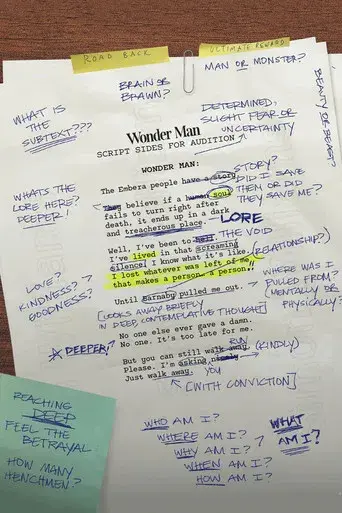 ROAD BACK
ULTIMATE REWARD
MAN OR MONSTER?
BRAIN OR
BRAWN?
BEAUTY OR BEAST?
WHAT IS
THE
SUBTEXT???
DETERMINED,
SLIGHT FEAR OR
UNCERTAINTY
Wonder Man
SCRIPT SIDES FOR AUDITION
WONDER MAN:
The Embera people have a story
STORY?
DID I SAVE
THEM OR DID
THEY SAVE ME?
They believe if a human soul
fails to turn right after
death, it ends up in a dark
and treacherous place.
LORE
WHATS THE
LORE HERE?
DEEPER!
Well, I've been to hell
THE VOID
I've lived in that screaming
silence, I know what it's like.
(RELATIONSHIP?)
I lost whatever was left of me
that makes a person a person.
LOVE?
KINDNESS?
GOODNESS?
WHERE WAS I
PULLED FROM?
(MENTALLY OR
PHYSICALLY?)
Until Barnaby pulled me out.
[LOOKS AWAY BRIEFLY
IN DEEP, CONTEMPLATIVE THOUGHT]
No one else ever gave a damn.
No one. It's too late for me.
DEEPER!
RUN
But you can still walk away.
(KINDLY)
Please. I'm asking nicely
YOU
Just walk away.
[WITH CONVICTION]
REACHING
DEEP
FEEL THE
BETRAYAL
HOW MANY
HENCHMEN?
WHO AM I?
WHERE AM I?
WHY AM I?
WHEN AM I?
HOW AM I?
WHAT
AM I?